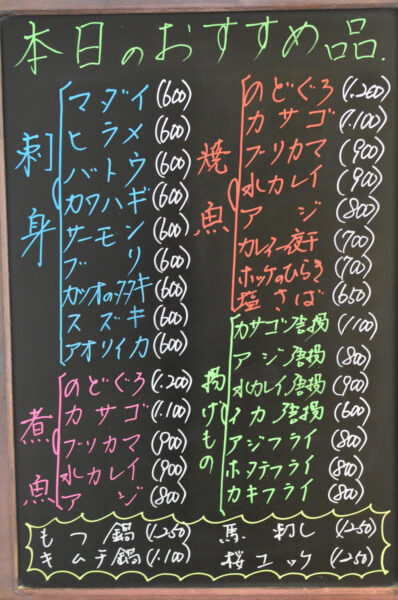 本日のおすすめ品.
刺身
マダイ (600)
ヒラメ (600)
バトウ (600)
カワハギ (600)
サーモン (600)
ブリ (600)
カツオのタタキ (600)
スズキ (600)
アオリイカ (600)
煮魚
のどぐろ (1.200)
カサゴ (1.100)
ブリカマ (900)
水カレイ (900)
アジ (800)
焼魚
のどぐろ (1.200)
カサゴ (1.100)
ブリカマ (900)
水カレイ (900)
アジ (800)
カレイ一夜干 (700)
ホッケのひらき (700)
塩さば (650)
揚げもの
カサゴ唐揚 (1100)
アジ唐揚 (800)
水カレイ唐揚 (900)
イカ唐揚 (600)
アジフライ (800)
ホタテフライ (800)
カキフライ (800)
もつ鍋 (1.250) 馬刺し (1.250)
キムチ鍋 (1.100) 桜ユッケ (1.250)